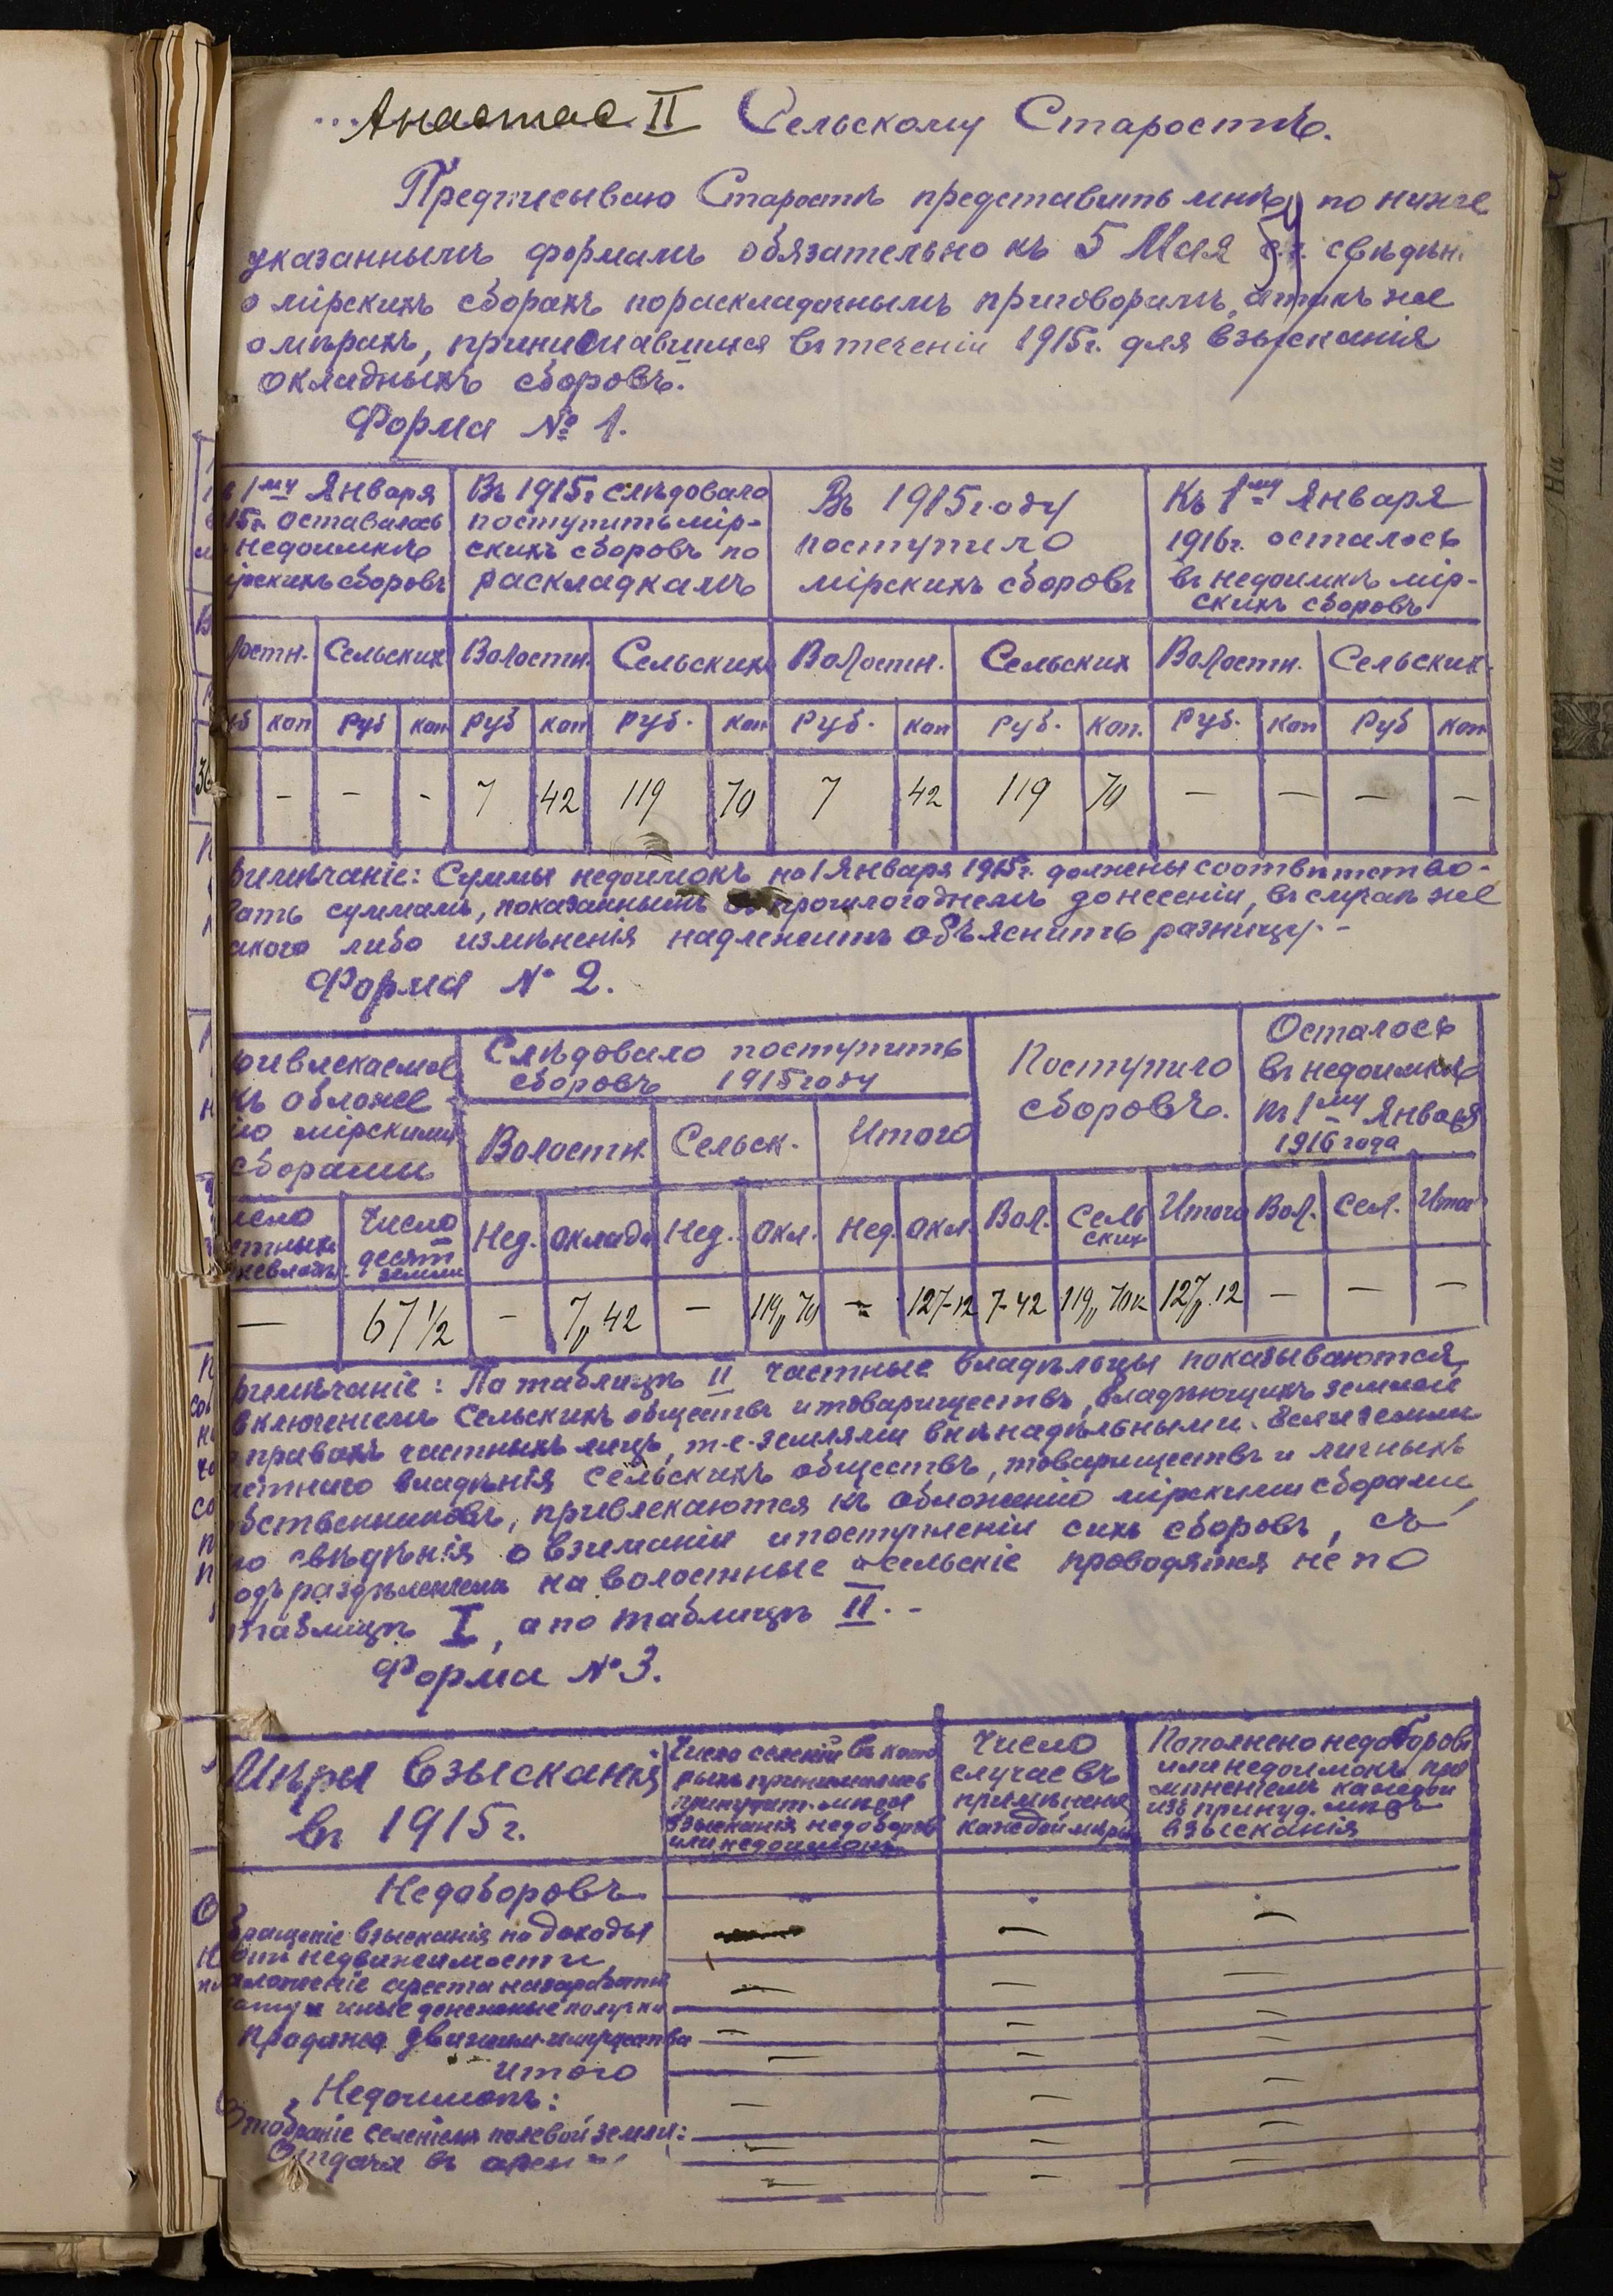 Анастас II Сельскому Старостѣ.
Предписываю Старостѣ представить мнѣ по ниже
указаннымъ формамъ обязательно къ 5 Мая с.г. свѣдѣнi
о мірскихъ сборахъ по раскладочнымъ приговорамъ, а такъ же
о мѣрахъ, принимавшихся въ теченіи 1915г. для взысканія
окладныхъ сборовъ.
Форма № 1.
1му Января
15г. оставалось
недоимкѣ
ірскихъ сборовъ
Въ 1915г слѣдовало
поступить мір-
скихъ сборовъ по
раскладкамъ
Въ 1915 году
поступило
мірскихъ сборовъ
Къ 1му Января
1916г. осталось
въ недоимкѣ мір-
скихъ сборовъ
лостн. Сельскихъ Волостн. Сельскихъ Волостн. Сельских Волостн. Сельских.
уб коп Руб коп Руб коп Руб. Коп Руб. Коп Руб. Коп. Руб. Коп Руб Коп
- - - 7 42 119 70 7 42 119 70 — — — —
римѣчаніе: Суммы недоимокъ на 1 Января 1915г. должены соотвѣтство-
вать суммамъ, показаннымъ въ прошлогоднемъ донесеніи, въ случаѣ же
акого либо измѣненія надлежитъ объяснить разницу. -
Форма № 2.
ривлекаемое
къ обложе
ію мірскими
сборами
Слѣдовало поступить
сборовъ 1915 году
Поступило
сборовъ.
Осталось
въ недоимкѣ
къ 1му Января
1916 года
Волостн. Сельск. Итого
исло
стныхъ
Число
десят
земли
Нед. Оклада Нед. Окл. Нед. Окл. Вол. Сель
ских Итого Вол. Сел. Итог
— 67 1/2 - 7,, 42 — 119,, 70 - 127-12 7-42 119,, 70к 127,, 12 — — —
римѣчаніе: По таблицѣ II частные владѣльцы показываются,
включеніемъ Сельскихъ обществъ и товариществъ, владѣющихъ землей
правахъ частныхъ лицъ, т.е. землями внѣнадѣльными. Если земли
астного владѣнія Сельскихъ обществъ, товариществъ и личныхъ
обственниковъ, привлекаются къ обложенію мірскими сборами,
то свѣдѣнія о взиманіи и поступленіи сихъ сборовъ, съ
одъ раздѣленіемъ на волостные и сельскіе проводятся не по
таблицѣ I, а по таблицѣ II. -
Форма № 3.
Мѣры взысканія
въ 1915г.
Число селеній въ кото
рыхъ принимались
принудит. мѣры
взысканія недоборовъ
или недоимокъ
Число
случаевъ
примѣненія
каждой мѣры
Пополнено недоборовъ
или недоимокъ при
мѣненіемъ каждой
изъ принуд. мѣръ
взысканія
Недоборовъ
бращеніе взысканія на доходы
отъ недвижимости — —
аложеніе ареста на заработн
лату и иные денежные получки — — —
Продажа движим. имущества — — —
Итого — — —
Недоимокъ: — — —
Отобраніе селеніемъ полевой земли: — — —
Отдача въ арен — —